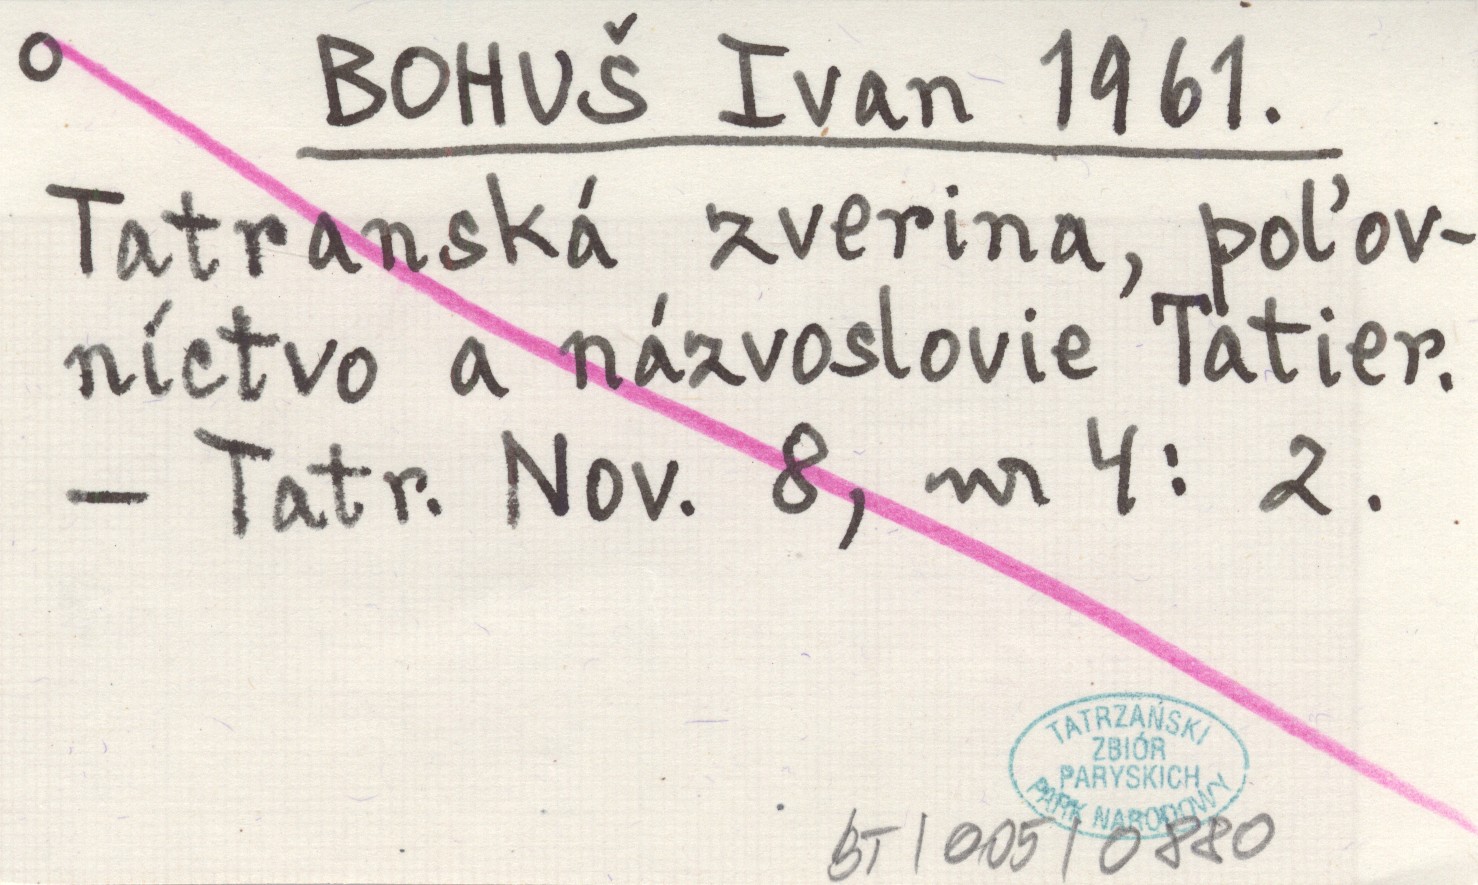 o BOHUŠ Ivan 1961.
Tatranská zverina, poľov-
níctvo a názvoslovie Tatier.
— Tatr. Nov. 8, nr 4: 2.
TATRZAŃSKI
ZBIÓR
PARYSKICH
PARK NARODOWY
BT/005/0880